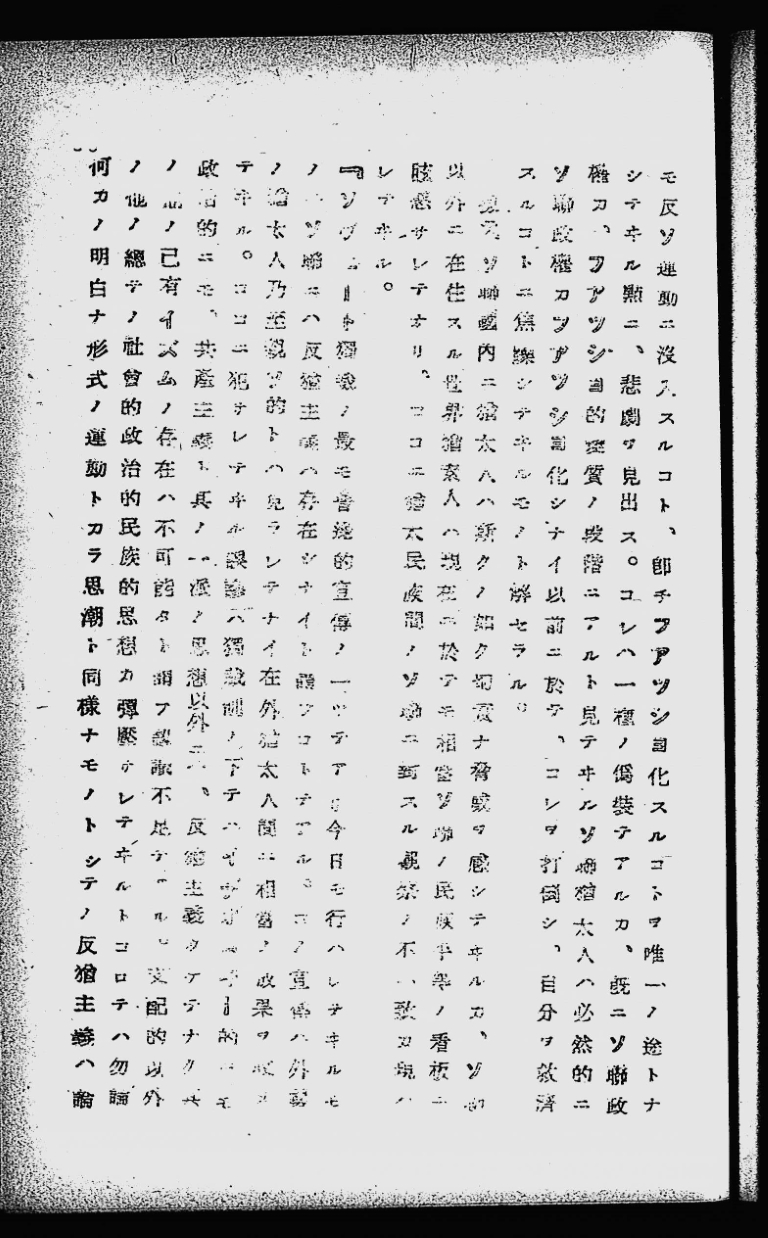 モ反ソ運動ニ沒入スルコト、卽チフアツシヨ化スルコトヲ唯一ノ途トナ
シテヰル點ニ、悲劇ヲ見出ス。コレハ一種ノ僞裝テアルカ、既ニソ聯政
權カ、フアツシヨ的變質ノ段階ニアルト見テヰルソ聯猶太人ハ必然的ニ
ソ聯政權カフアツシヨ化シナイ以前ニ於テ、コレヲ打倒シ、自分ヲ救濟
スルコトニ焦慮シテヰルモノト解セラル。
ソ聯國內ニ猶太人ハ斯クノ如ク切實ナ脅威ヲ感シテヰルカ、ソ聯
以外ニ在住スル世界猶太人ハ現在ニ於テモ相當ソ聯ノ民族平等ノ看板ニ
眩惑サレテオリ、ココニ猶太民族間ノソ聯ニ對スル觀察ノ不一致カ現ハ
レテヰル。
『ソヴエート獨裁ノ最モ普遍的宣傳ノ一ツテアリ今日モ行ハレテヰルモ
ノハソ聯ニハ反猶主義ハ存在シナイト謂フコトテアル。コノ宣傳ハ外國
ノ猶太人乃至親ソ的トハ見ラレテナイ在外猶太人間ニ相當ノ效果ヲ收メ
テヰル。ココニ犯サレテヰル誤謬ハ獨裁制ノ下テハイデオロギー的ニモ
政治的ニモ、共產主義ト其ノ一派ノ思想以外ニハ、反猶主義タケテナク共
ノ他ノ已有イズムノ存在ハ不可能タト謂フ認識不足テアル。支配的以外
ノ他ノ總テノ社會的政治的民族的思想カ彈壓サレテヰルトコロテハ勿論
何カノ明白ナ形式ノ運動トカラ思潮ト同樣ナモノトシテノ反猶主義ハ論